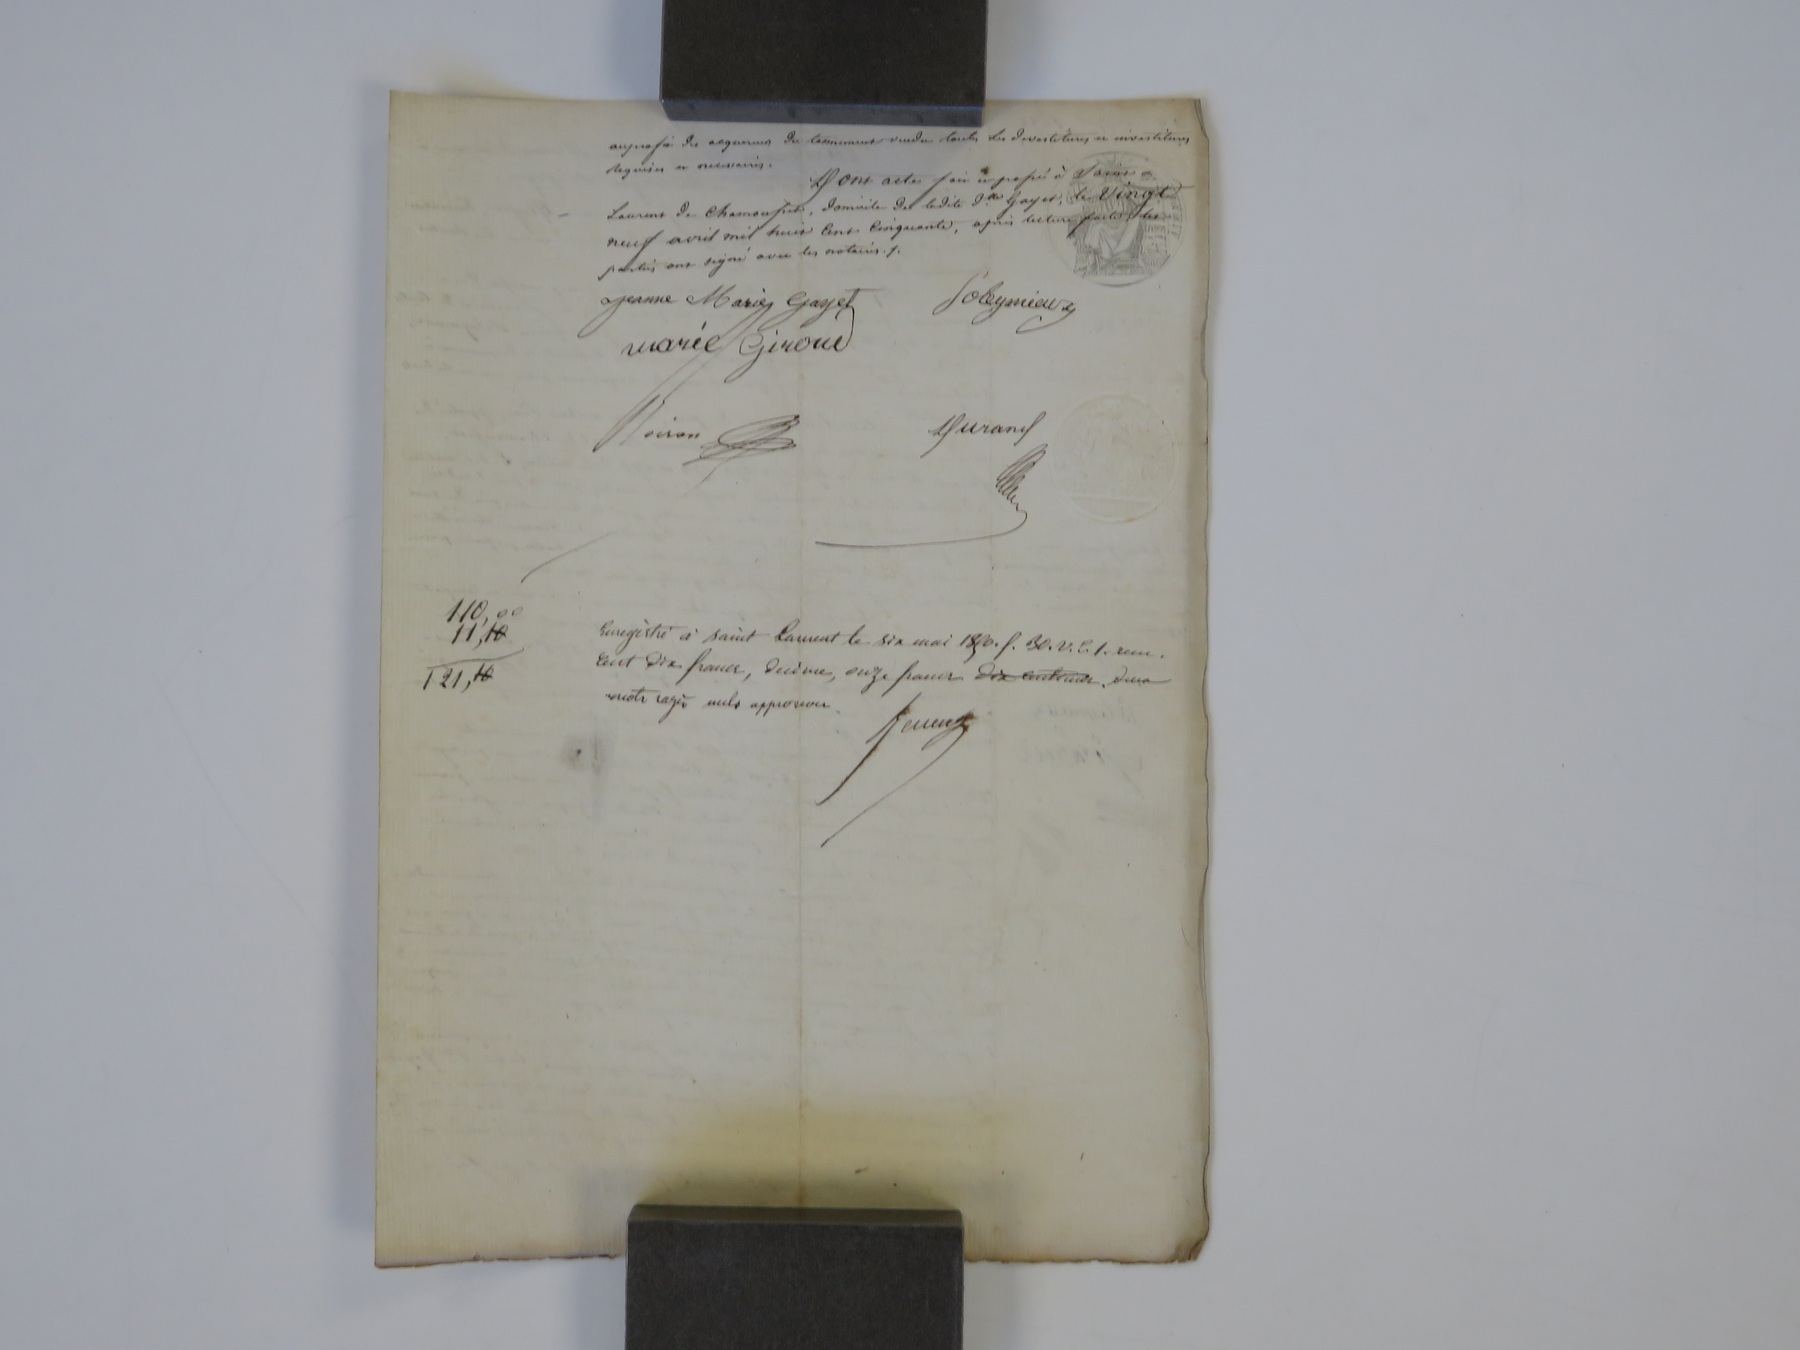 au profit des acquereurs du tennement vendu toutes les devestitures et investitures
requises et necessaires.
Dont acte fait et passé à Saint
Laurent de Chamousset, domicile de ladite dlle Gayet, le vingt
neuf avril mil huit cent cinquante, après lecture faite, les
parties ont signé avec les notaires.
jeanne Marie Gayet
Soleymieux
marie Giroud
Voiron
Durand
110,00
11,10
121,10
Enregistré à saint Laurent le six mai 1850. f. 30. v. C. 1. recu.
cent dix francs, decime, onze francs dix centimes. deux
mots rayés nuls approuvés.